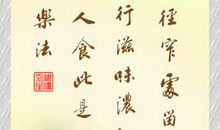 徑窄處留
行滋味濃
人食此是
樂法